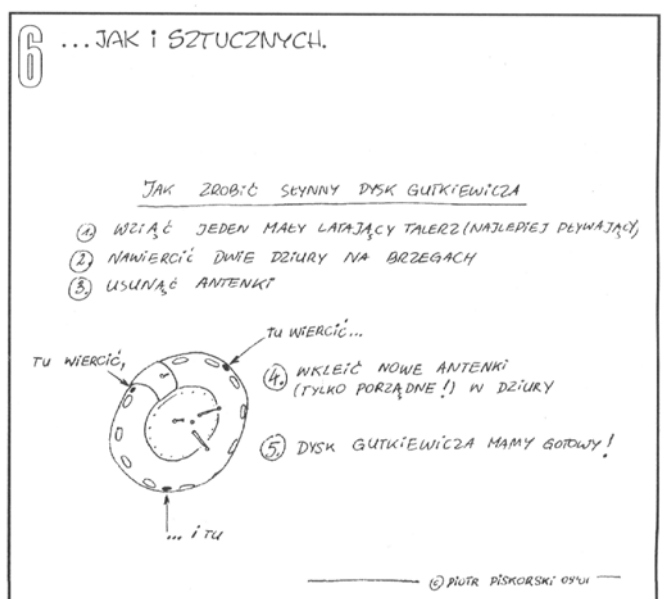 6 ...JAK i SZTUCZNYCH.
JAK ZROBIĆ SŁYNNY DYSK GUTKiEWiCZA
1. WZIĄĆ JEDEN MAŁY LATAJĄCY TALERZ (NAJLEPIEJ PŁYWAJĄCY)
2. NAWIERCIĆ DWIE DZIURY NA BRZEGACH
3. USUNĄĆ ANTENKI
TU WIERCIĆ...
TU WIERCIĆ,
4. WKLEIĆ NOWE ANTENKI
(TYLKO PORZĄDNE!) W DZIURY
5. DYSK GUTKiEWiCZA MAMY GOTOWY!
... i TU
© PIOTR PISKORSKI